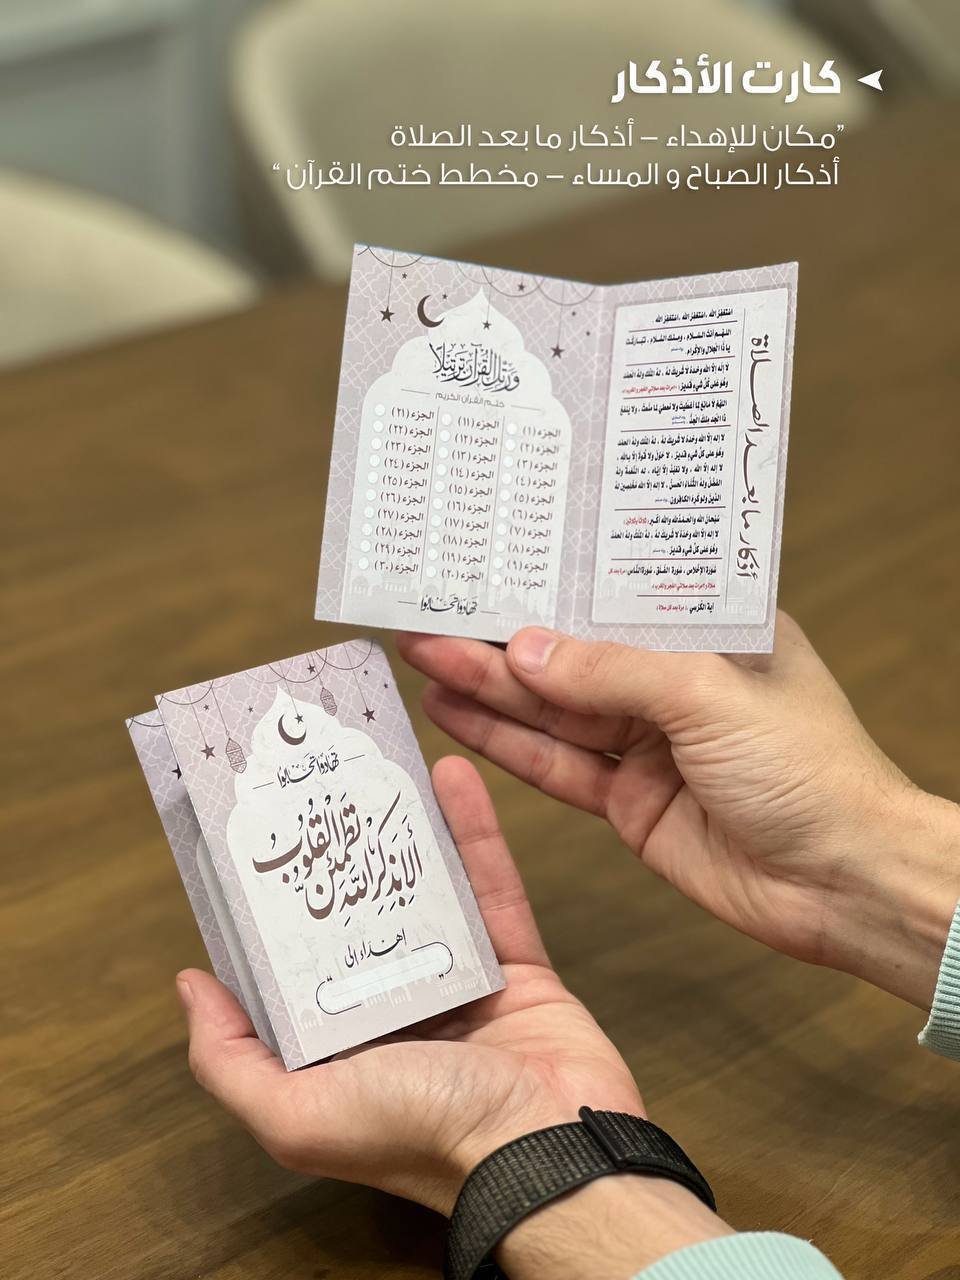 كارت الأذكار
"مكان للإهداء – أذكار ما بعد الصلاة
أذكار الصباح و المساء – مخطط ختم القرآن"
أذكار ما بعد الصلاة
استغفر الله ، استغفر الله ، استغفر الله
اللهم أنت السلام ، ومنك السلام ، تباركت
يا ذا الجلال والإكرام
لا إله إلا الله وحده لا شريك له ، له الملك وله الحمد
وهو على كل شيء قدير
اللهم لا مانع لما أعطيت ولا معطي لما منعت ، ولا ينفع
ذا الجد منك الجد
لا إله إلا الله وحده لا شريك له ، له الملك وله الحمد
وهو على كل شيء قدير ، لا حول ولا قوة إلا بالله ،
لا إله إلا الله ، ولا نعبد إلا إياه ، له النعمة وله
الفضل وله الثناء الحسن ، لا إله إلا الله مخلصين له
الدين ولو كره الكافرون
سبحان الله والحمدلله والله أكبر (ثلاثا وثلاثين)
لا إله إلا الله وحده لا شريك له ، له الملك وله الحمد
وهو على كل شيء قدير
سورة الإخلاص ، سورة الفلق ، سورة الناس
آية الكرسي (مرة بعد كل صلاة)
ورتل القرآن ترتيلا
ختم القرآن الكريم
الجزء (١)
الجزء (٢)
الجزء (٣)
الجزء (٤)
الجزء (٥)
الجزء (٦)
الجزء (٧)
الجزء (٨)
الجزء (٩)
الجزء (١٠)
الجزء (١١)
الجزء (١٢)
الجزء (١٣)
الجزء (١٤)
الجزء (١٥)
الجزء (١٦)
الجزء (١٧)
الجزء (١٨)
الجزء (١٩)
الجزء (٢٠)
الجزء (٢١)
الجزء (٢٢)
الجزء (٢٣)
الجزء (٢٤)
الجزء (٢٥)
الجزء (٢٦)
الجزء (٢٧)
الجزء (٢٨)
الجزء (٢٩)
الجزء (٣٠)
تهادوا تحابوا
تهادوا تحابوا
ألا بذكر الله تطمئن القلوب
اهداء الى